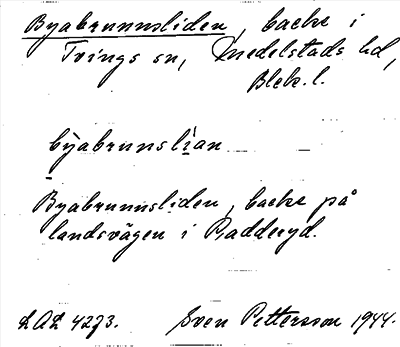 Byabrunnsliden, backe i
Tvings sn, Medelstads hd,
Blek. l.
bỳabrunnslìan
Byabrunnsliden, backe på
landsvägen i Badderyd.
LAL 4273. Sven Pettersson 1944.